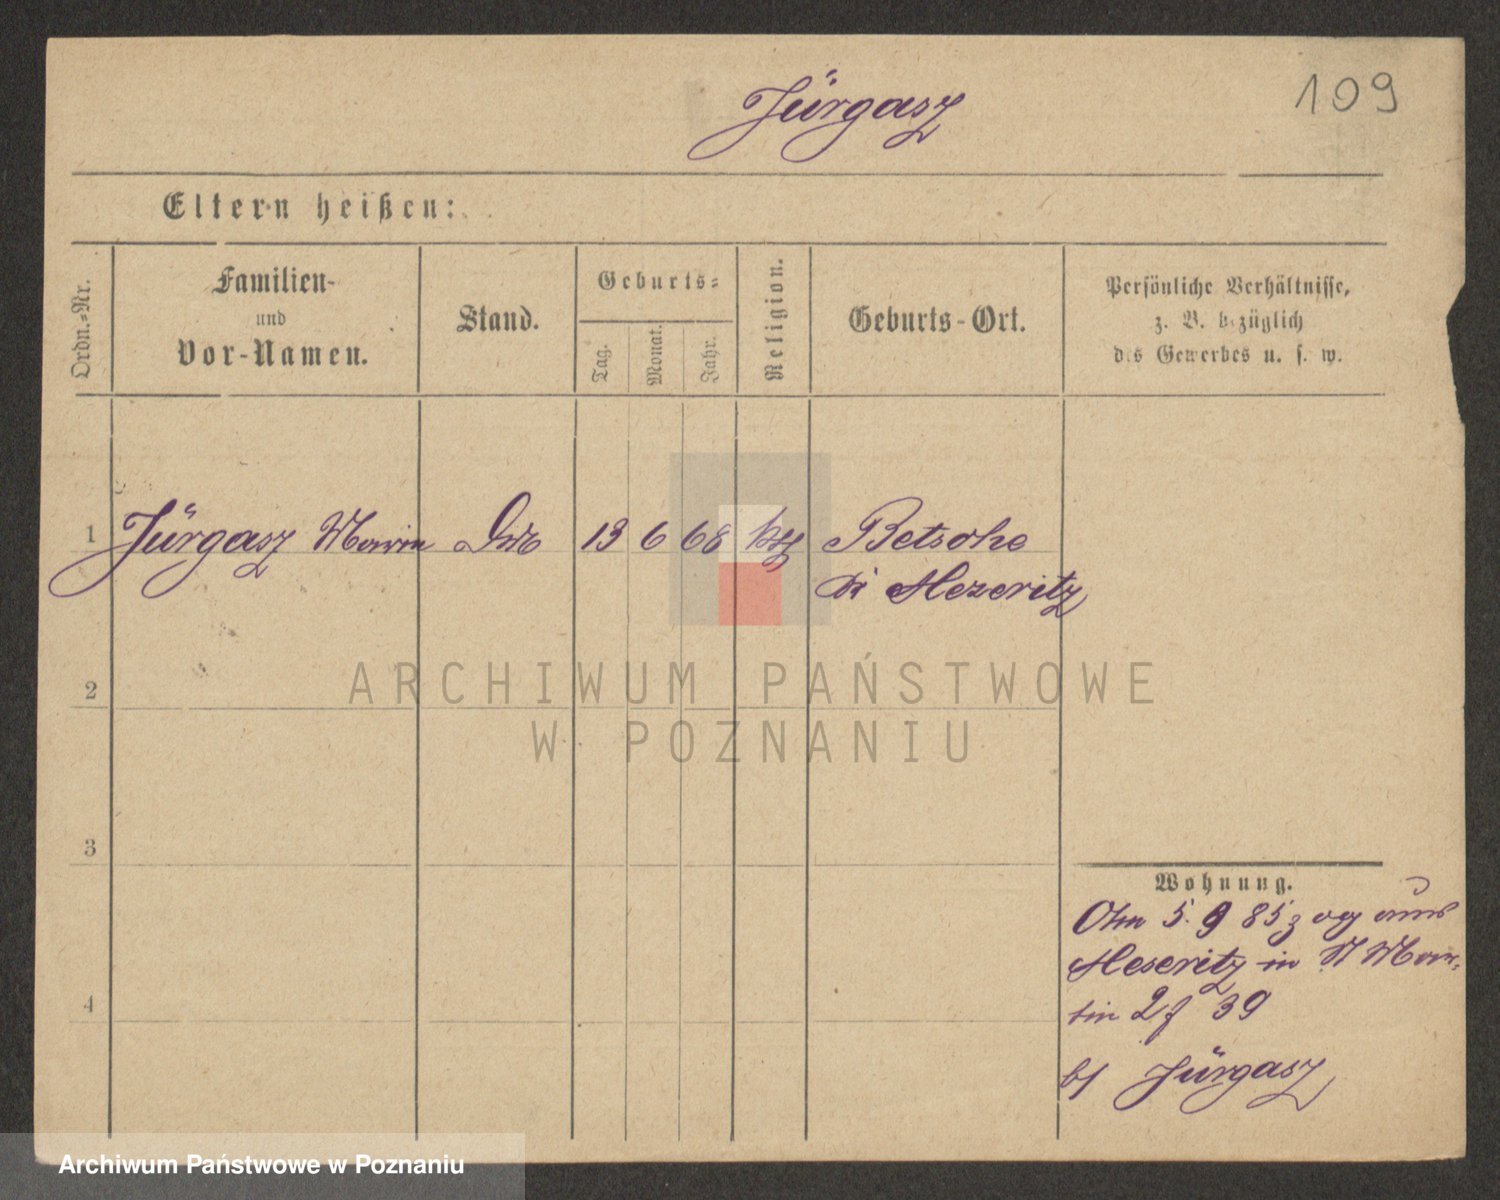 Jürgasz
109
Eltern heißen:
Ordn.-Nr.
Familien-
und
Vor-Namen.
Stand.
Geburts-
Tag.
Monat.
Jahr.
Religion.
Geburts-Ort.
Persönliche Verhältnisse,
z. B. bezüglich
des Gewerbes u. s. w.
1 Jürgasz Marin 13 6 68 ktz Betsche
Kr Meseritz
2
3
4
Wohnung.
Am 5. 9 85 zog aus
Meseritz in St Mar-
tin 27 39
b/ Jürgasz
ARCHIWUM PAŃSTWOWE
W POZNANIU
Archiwum Państwowe w Poznaniu